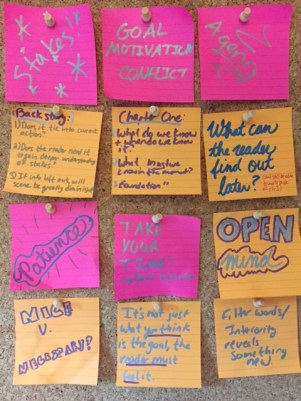 Stakes!
GOAL
MOTIVATION
CONFLICT
Agency
Backstory:
1) Does it tie into current
action?
2) Does the reader need it
to gain deeper understanding
of stakes?
3) If info left out, will
scene be greatly diminished
Chapter One:
What do we know
+ when do we know
it?
What must we
know in the moment?
"Foundation"
What can
the reader
find out
later?
Patience
TAKE
YOUR
TIME!
OPEN
Mind
MUSE
V.
MEGSPAN?
It's not just
what you think
is the goal, the
reader must
feel it.
Filter words/
Interiority
reveals
something
new